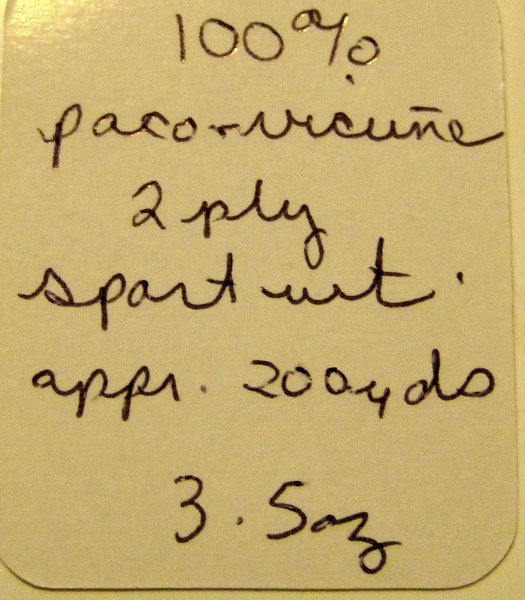 100%
paco-vicuñe
2 ply
sport wt.
appr. 200yds
3.5oz